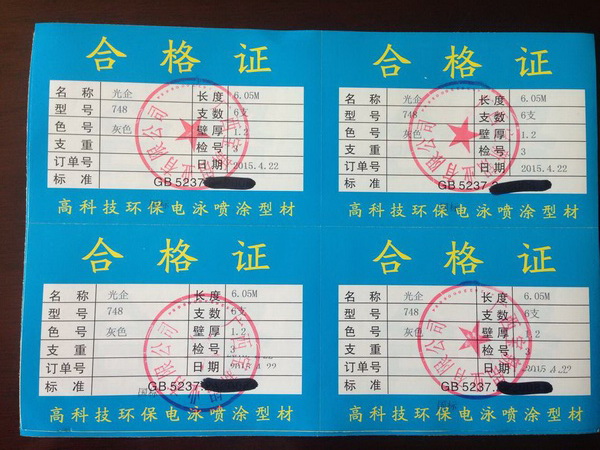 合格证
名称 光企 长度 6.05M
型号 748 支数 6支
色号 灰色 壁厚 1.2
支重 检号 3
订单号 日期 2015.4.22
标准 GB5237
高科技环保电泳喷涂型材
合格证
名称 光企 长度 6.05M
型号 748 支数 6支
色号 灰色 壁厚 1.2
支重 检号 3
订单号 日期 2015.4.22
标准 GB5237
高科技环保电泳喷涂型材
合格证
名称 光企 长度 6.05M
型号 748 支数 6支
色号 灰色 壁厚 1.2
支重 检号 3
订单号 日期 2015.4.22
标准 GB5237
国标
高科技环保电泳喷涂型材
合格证
名称 光企 长度 6.05M
型号 748 支数 6支
色号 灰色 壁厚 1.2
支重 检号 3
订单号 日期 2015.4.22
标准 GB5237.
高科技环保电泳喷涂型材
业有限公司
业有限公司
业有限公司
业有限公司